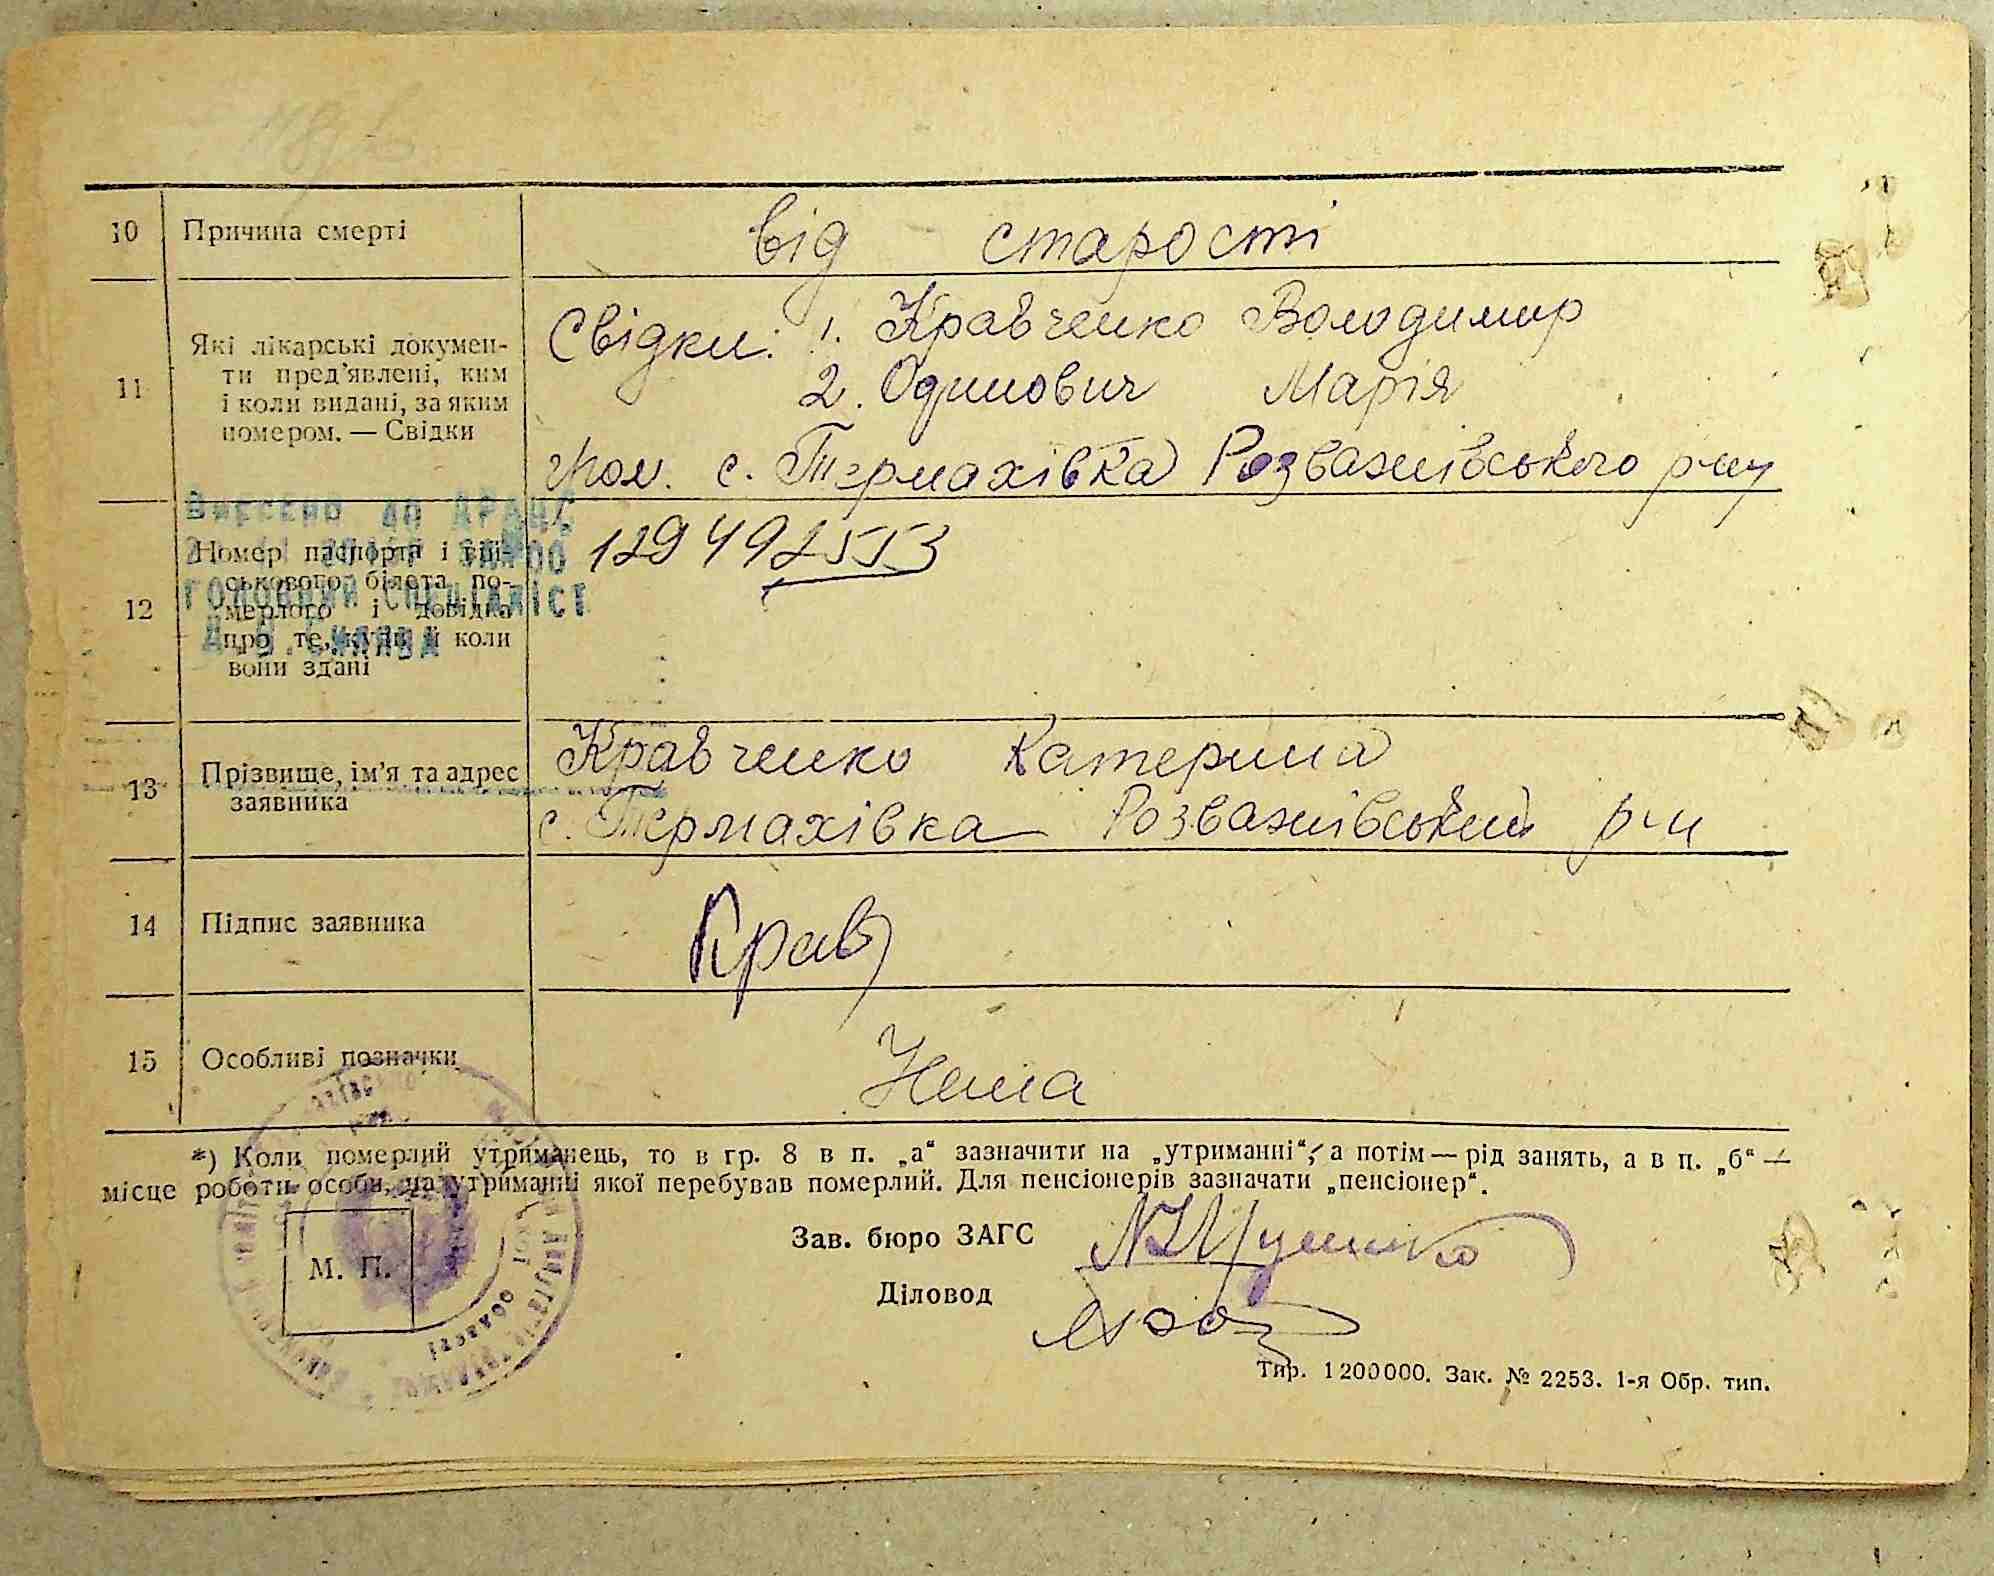 10 Причина смерті від старості
11 Які лікарські докумен-
ти пред'явлені, ким
і коли видані, за яким
номером. — Свідки
Свідки: 1. Кравченко Володимир
2. Одинович Марія
гром. с. Термахівка Розважівського р-ну
Внесено до ДРАЦС
головний спеціаліст
12 Номер паспорта і вій-
ськового білета по-
мерлого і довідка
про те, куди й коли
вони здані
129492553
13 Прізвище, ім'я та адрес
заявника
Кравченко Катерина
с. Термахівка Розважівський р-н
14 Підпис заявника Крав
15 Особливі позначки Нема
*) Коли померлий утриманець, то в гр. 8 в п. „а“ зазначити на „утриманні“, а потім — рід занять, а в п. „б“ —
місце роботи особи, на утриманні якої перебував померлий. Для пенсіонерів зазначати „пенсіонер“.
Зав. бюро ЗАГС
М. П.
Діловод
області
Тир. 1200000. Зак. № 2253. 1-я Обр. тип.